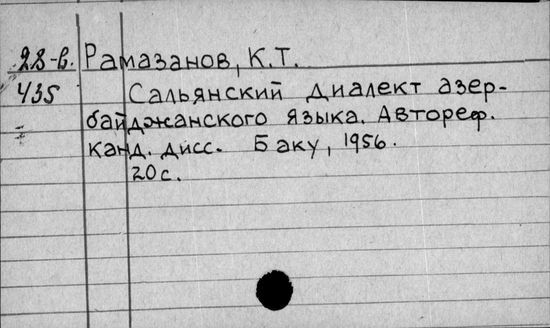 28-в. Рамазанов, К.Т.
435 Сальянский диалект азер-
байджанского языка. Автореф.
канд. дисс. Баку, 1956.
20 с.